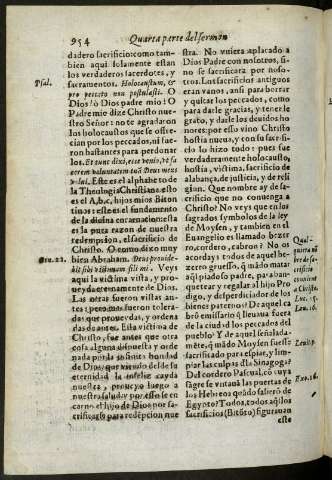 954
Quarta parte del sermon
dadero sacrificio: como tam-
bien aqui solamente estan
los verdaderos sacerdotes, y
sacramentos. Holocaustum, &
pro peccato non postulasti. O
Dios! ò Dios padre mio! O
Padre mio dize Christo nue-
stro Señor: no te agradaron
los holocaustos que se offre-
cian por los peccados, ni fue-
ron bastantes para perdonar
los. Et tunc dixi, ecce venio, vt fa
cerem voluntatem tuã Deus meus
volui. Este es el alphabeto de
la Theologia Christiana: esto
es el A, b, c, hijos mios Biton
tinos: este es el fundamento
de la diuina encarnacion: esta
es la pura razon de nuestra
redempsion, el sacrificio de
Christo. O como dixo muy
bien Abraham. Deus prouide-
bit sibi victimam fili mi. Veys
aqui la victima vista, y pro-
ueyda eternamente de Dios.
Las otras fueron vistas an-
tes; pero no fueron tolerade
antes que proueydas, y ordena
das de antes. Esta victima de
Christo, fue antes que otra
cosa alguna dispuesta, y orde
nada por la infinita bondad
de Dios, que viendo desde su
eternidad la infelice cayda
nuestra, proueyo luego a
nuestra salud, y por esso se en
carno el hijo de Dios por sa-
crificarse para redempcion nue
stra. No vuiera aplacado a
Dios Padre con nosotros, si-
no se sacrificara por noso-
tros. Los sacrificios antiguos
eran vanos, ansi para borrar
y quitar los peccados, como
para darle gracias, y tener le
grato, y darle los deuidos ho
nores: por esso vino Christo
hostia nueua, y con su sacrifi-
cio lo hizo todo: pues fue
verdaderamente holocausto,
hostia, victima, sacrificio de
alabança, de justicia, y de reli
gion. Que nombre ay de sa-
crificio que no conuenga a
Christo? No veys que en los
sagrados symbolos de la ley
de Moysen, y tambien en el
Euangelio es llamado bezer
ro, cordero, cabron? No os
acordays todos de aquel be-
zerro gruesso, q̃ mãdo matar
aq̃l piadoso padre, para ban-
quetear y regalar al hijo pro
digo, y desperdiciador de los
bienes paternos? De aquel ca
brõ emissario q̃ lleuaua fuera
de la ciudad los peccados del
pueblo? Y de aquel señalada-
mẽte, q̃ mãdo Moysen fuesse
sacrificado para espiar, y lim-
piar las culpas dla Sinagoga?
Del cordero Pascual, cõ cuya
sagre se vntauã las puertas de
los Hebreos quãdo salierõ de
Egypto? Todos, todos aq̃llos
sacrificios (Bitõto) figurauan
este
Psal.
Gen. 22.
Qual-
quiera no
bre de sa-
crificio
conuiene
a Christo.
Luc. 15.
Leui. 16.
Exo. 12.